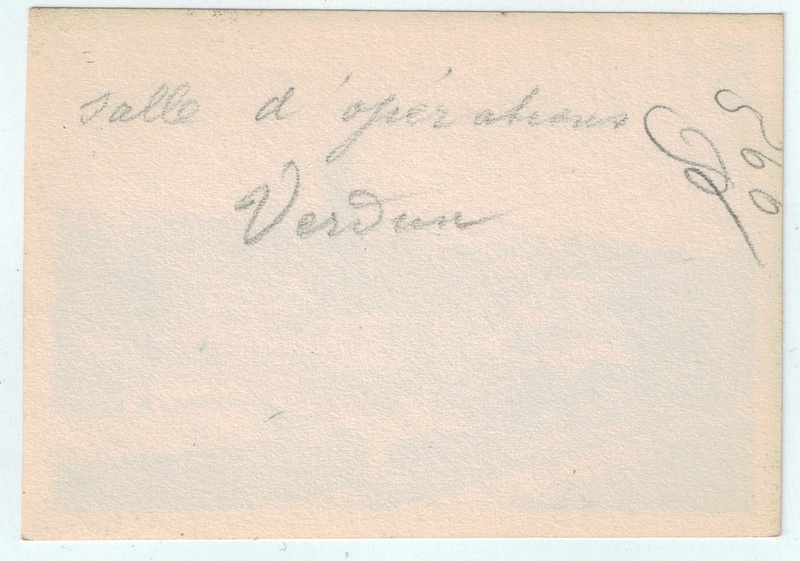 salle d'opérations
Verdun